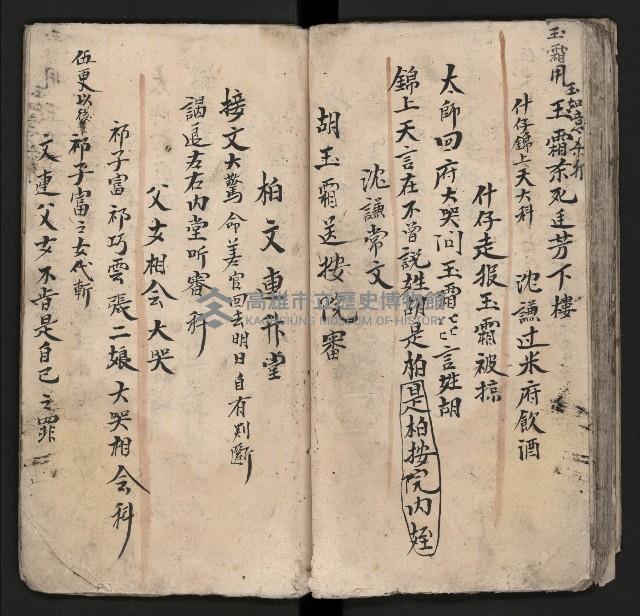 玉霜用
玉如意分打
玉霜杀死廷芳下樓
什仔錦上天大科
沈謙过米府飲酒
什仔走报玉霜被掠
太師回府大哭问玉霜匕匕言姓胡
錦上天言在不曾說姓胡是柏是柏按院内姪
沈謙常文
胡玉霜送按院審
柏文連升堂
接文大驚命差官回去明日自有判斷
謁退左右内堂听審科
父女相会大哭
祁子富祁巧雲張二娘大哭相会科
伍更以後
祁子富之女代斬
文連父女不肯是自己之罪
高雄市立歷史博物館
KAOHSIUNG MUSEUM OF HISTORY